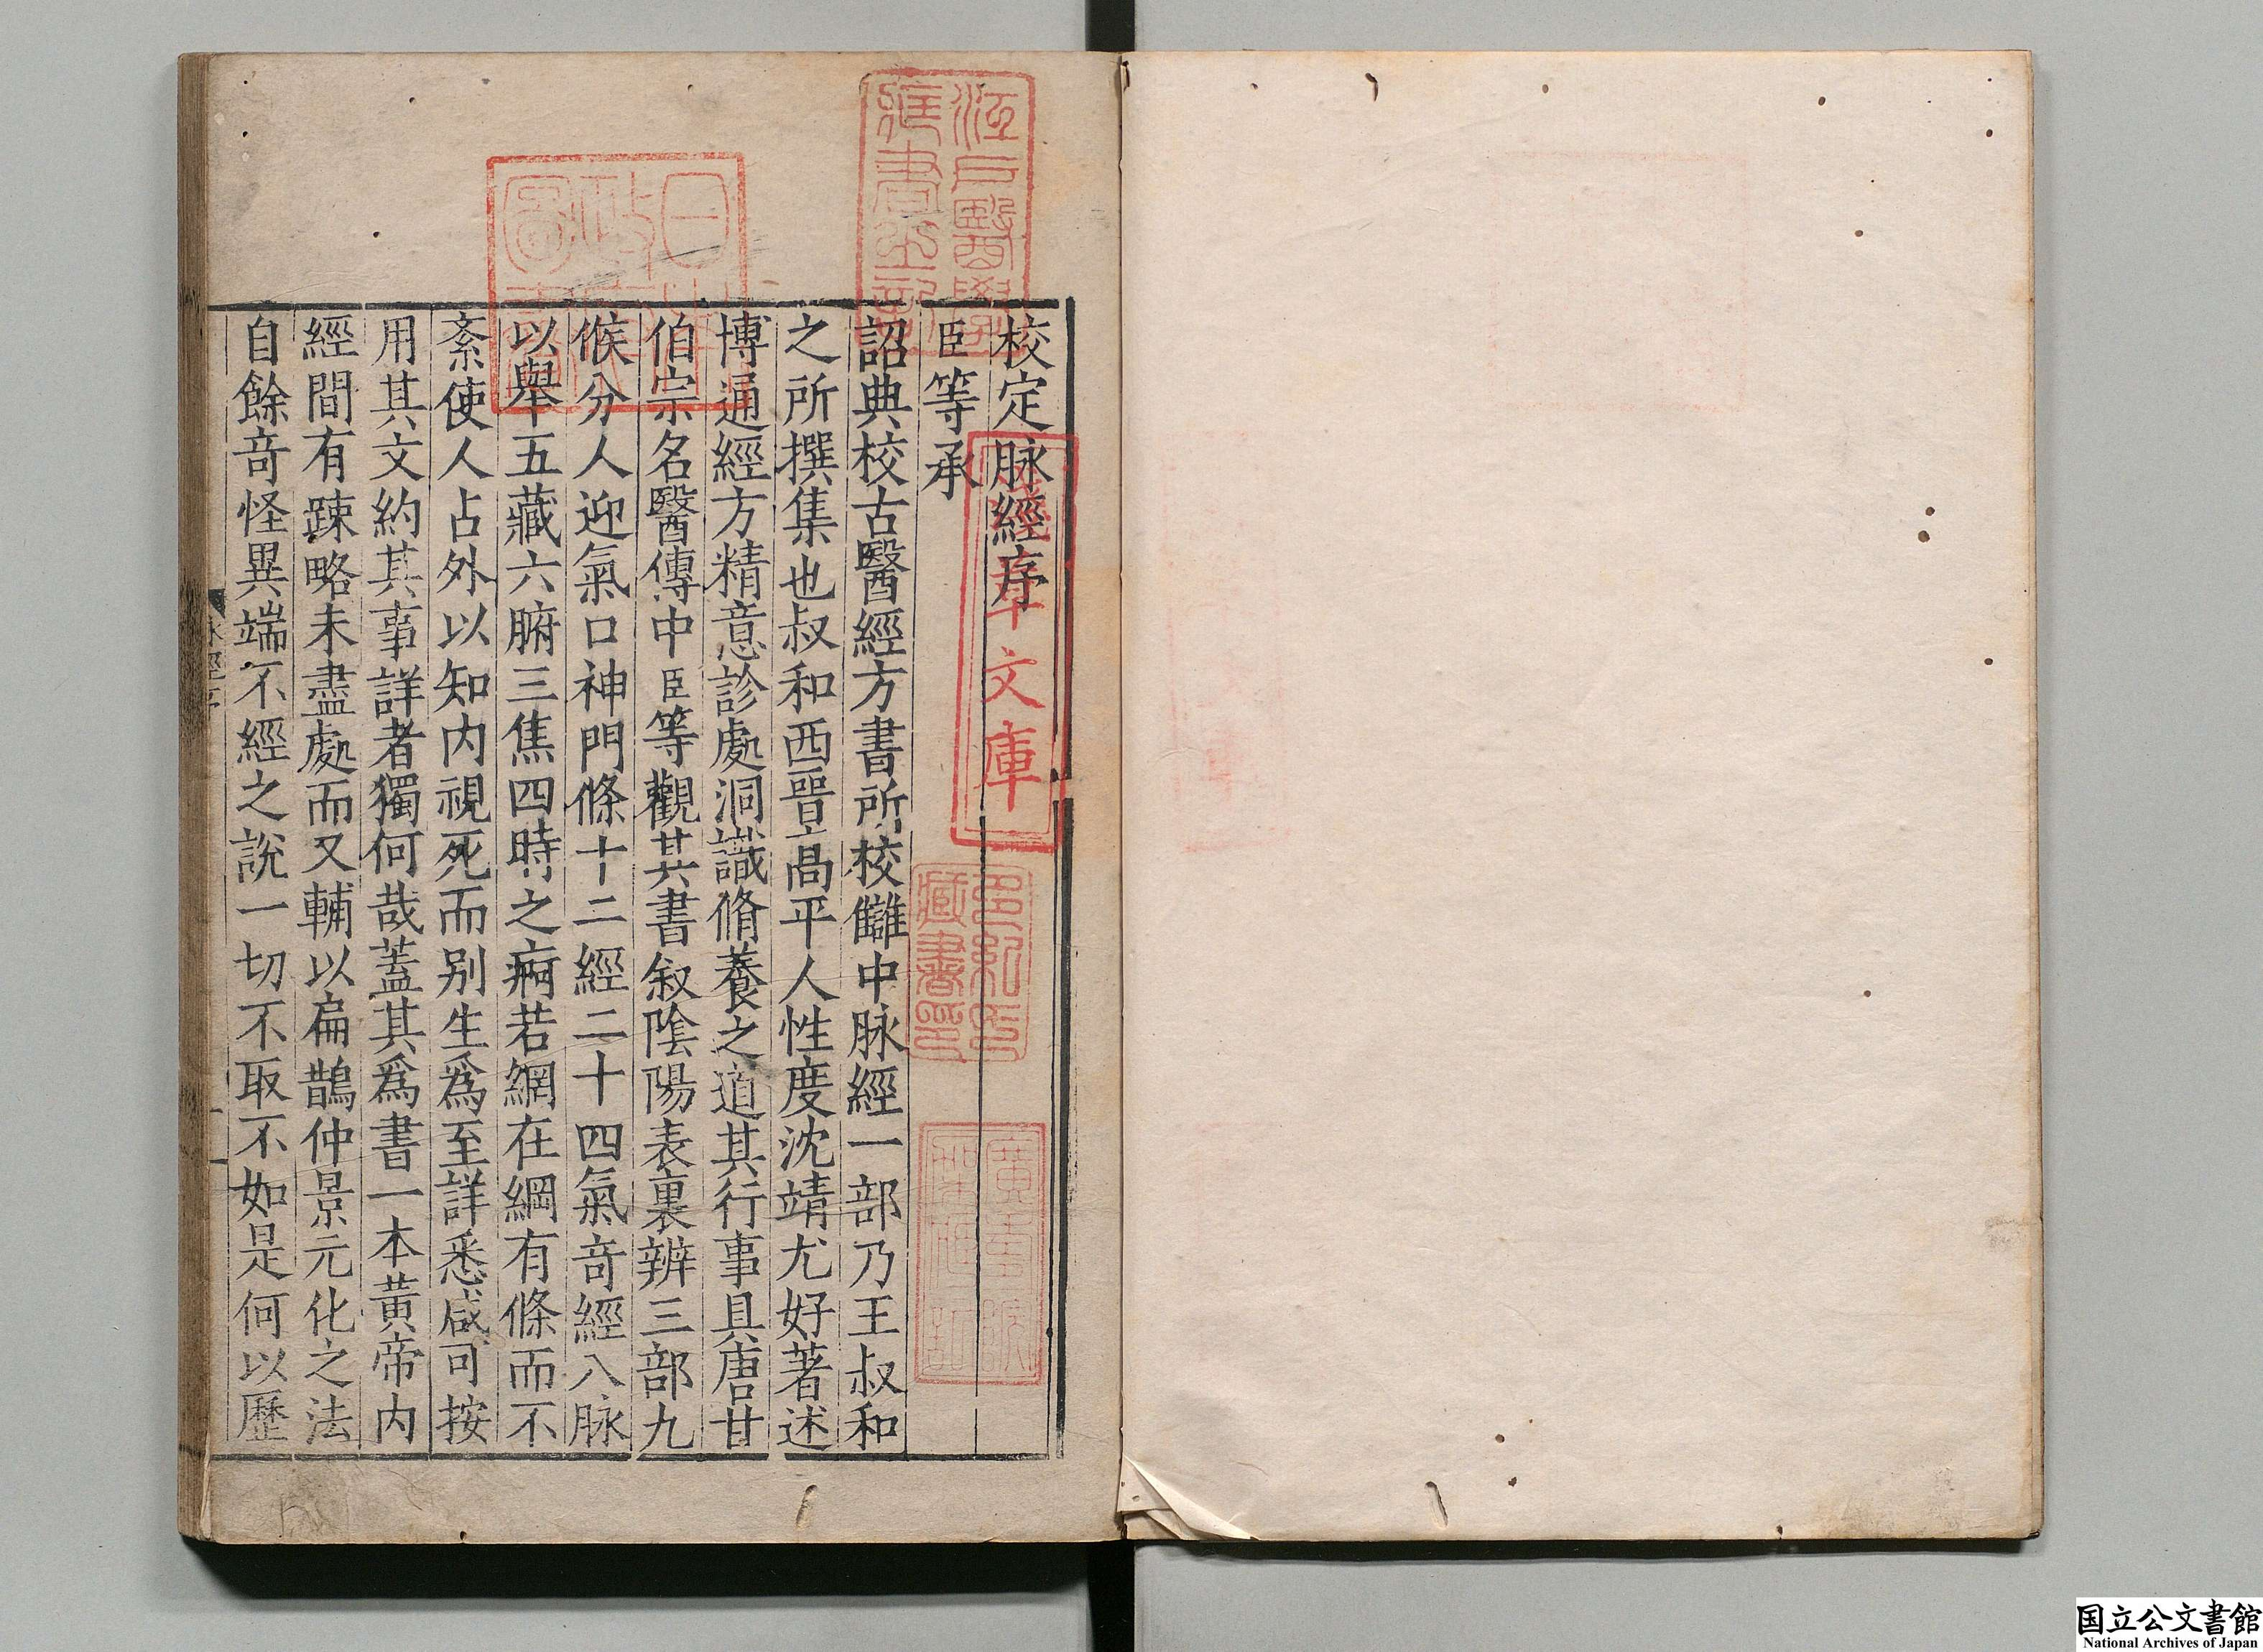 校定脉經序
臣等承
詔典校古醫經方書所校讎中脉經一部乃王叔和
之所撰集也叔和西晉高平人性度沈靖尤好著述
博通經方精意診處洞識脩養之道其行事具唐甘
伯宗名醫傳中臣等觀其書叙陰陽表裏辨三部九
候分人迎氣口神門條十二經二十四氣竒經八脉
以舉五藏六腑三焦四時之病若網在綱有條而不
紊使人占外以知内視死而别生爲至詳悉咸可按
用其文約其事詳者獨何哉蓋其爲書一本黄帝内
經間有踈略未盡處而又輔以扁鵲仲景元化之法
自餘竒怪異端不經之說一切不取不如是何以歷
脉經序
江戶醫學
藏書之記
日本
政府
圖書
文庫
多紀氏
藏書印
廣壽院
架藏記
国立公文書館
National Archives of Japan